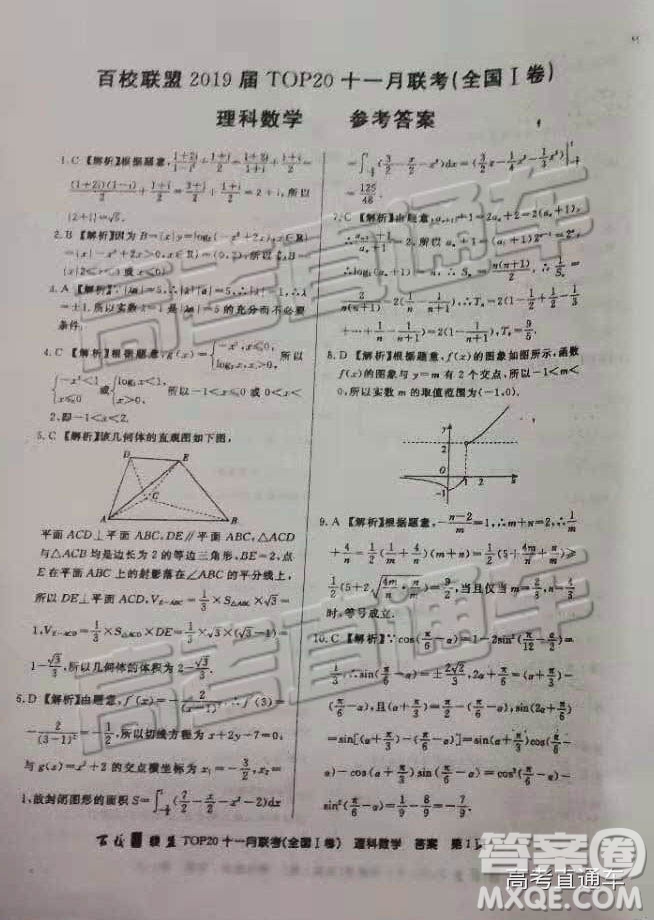 百校联盟 2019 届 TOP20 十一月联考(全国Ⅰ卷)
理科数学 参考答案
1.C 【解析】根据题意,(1+2i)/(1-i)+(1+i)/2=(1+2i)/(1-i)+(1+i)/2=
((1+2i)(1-i))/2+(1+i)/2=(3+i)/2+(1+i)/2=2+i,所以
|2+i|=√5.
2.B 【解析】因为 B={x|y=log₂(-x²+2x),x∈R}
={x|-x²+2x>0,x∈R}=(0,2),
3.A 【解析】∵|λa|=5,∴|λ||a|=5,∴|λ|=1,λ
=±1,所以实数 λ=1 是 |λa|=5 的充分而不必要
条件.
4.C 【解析】根据题意,g(x)={-x²,x≤0, log₂x,x>0. 所以
{-x²<1, x≤0 或{log₂x<1, x>0, 所以-1<x<0 或 0<x<
2,即-1<x<2.
5.C 【解析】该几何体的直观图如下图,
D E
C
A B
平面 ACD⊥平面 ABC,DE∥平面 ABC,△ACD
与△ABC 均是边长为 2 的等边三角形,BE=2,点
E 在平面 ABC 上的射影落在∠ABC 的平分线上,
DE⊥平面 ACD,
V_{E-ABC}=1/3×S△ABC×√3=
1,V_{E-ACD}=1/3×S△ACD×DE=1/3×√3×(√3-1)=
1-√3/3,所以几何体的体积为 2-√3/3.
6.D 【解析】由题意,f′(x)=-2/(x-1)²,∴f′(3)=
-2/(3-1)²=-1/2,所以切线方程为 x+2y-7=0,
与 g(x)=x²+2 的交点横坐标为 x₁=-3/2,x₂=
1,故封闭图形的面积 S=∫(7/2-x/2-x²-2)dx
=∫(3/2-x/2-x²)dx=(3/2x-1/4x²-1/3x³)|
=125/48.
7.C 【解析】由题意,aₙ₊₁+1=2aₙ+2=2(aₙ+1),
∴(aₙ₊₁+1)/(aₙ+1)=2,所以 aₙ+1=(a₁+1)2ⁿ⁻¹=2ⁿ,
∴log₂(aₙ+1)=n,∴Sₙ=n(n+1)/2,∴1/Sₙ=
2/(n(n+1))=2(1/n-1/(n+1)),Tₙ=2(1-1/2+1/2-1/3
+⋯+1/n-1/(n+1))=2(1-1/(n+1)),T₉=9/5.
8.D 【解析】根据题意,f(x)的图象如图所示,函数
f(x)的图象与 y=m 有 2 个交点,所以-1<m<
0,所以实数 m 的取值范围为(-1,0).
y
2
1
x
-1
9.A 【解析】根据题意,(-n-2)/(m-2)=1,∴m+n=2,∴1/m
+4/n=1/2(1/m+4/n)(m+n)=1/2(5+n/m+4m/n)≥
1/2(5+2√(4m/n·n/m))=9/2,当且仅当 m=2/3,n=4/3
时,等号成立.
10.C 【解析】∵cos(π/6-α)=1-2sin²(π/12-α/2)=
1/3,∴sin(π/6-α)=±2√2/3,∵sin(α+π/3)=cos(π/6
-α),且(α+π/3)=π/2-(π/6-α),sin(2α+π/6)
=sin[(α+π/3)-(π/6-α)]=sin(α+π/3)cos(π/6-
α)-cos(α+π/3)sin(π/6-α)=cos²(π/6-α)-
sin²(π/6-α)=1/9-8/9=-7/9.
百校联盟 TOP20 十一月联考(全国Ⅰ卷) 理科数学 答案 第 1 页
高考直通车
高考直通车
高考直通车
高考直通车
答案圈
MXQE.COM